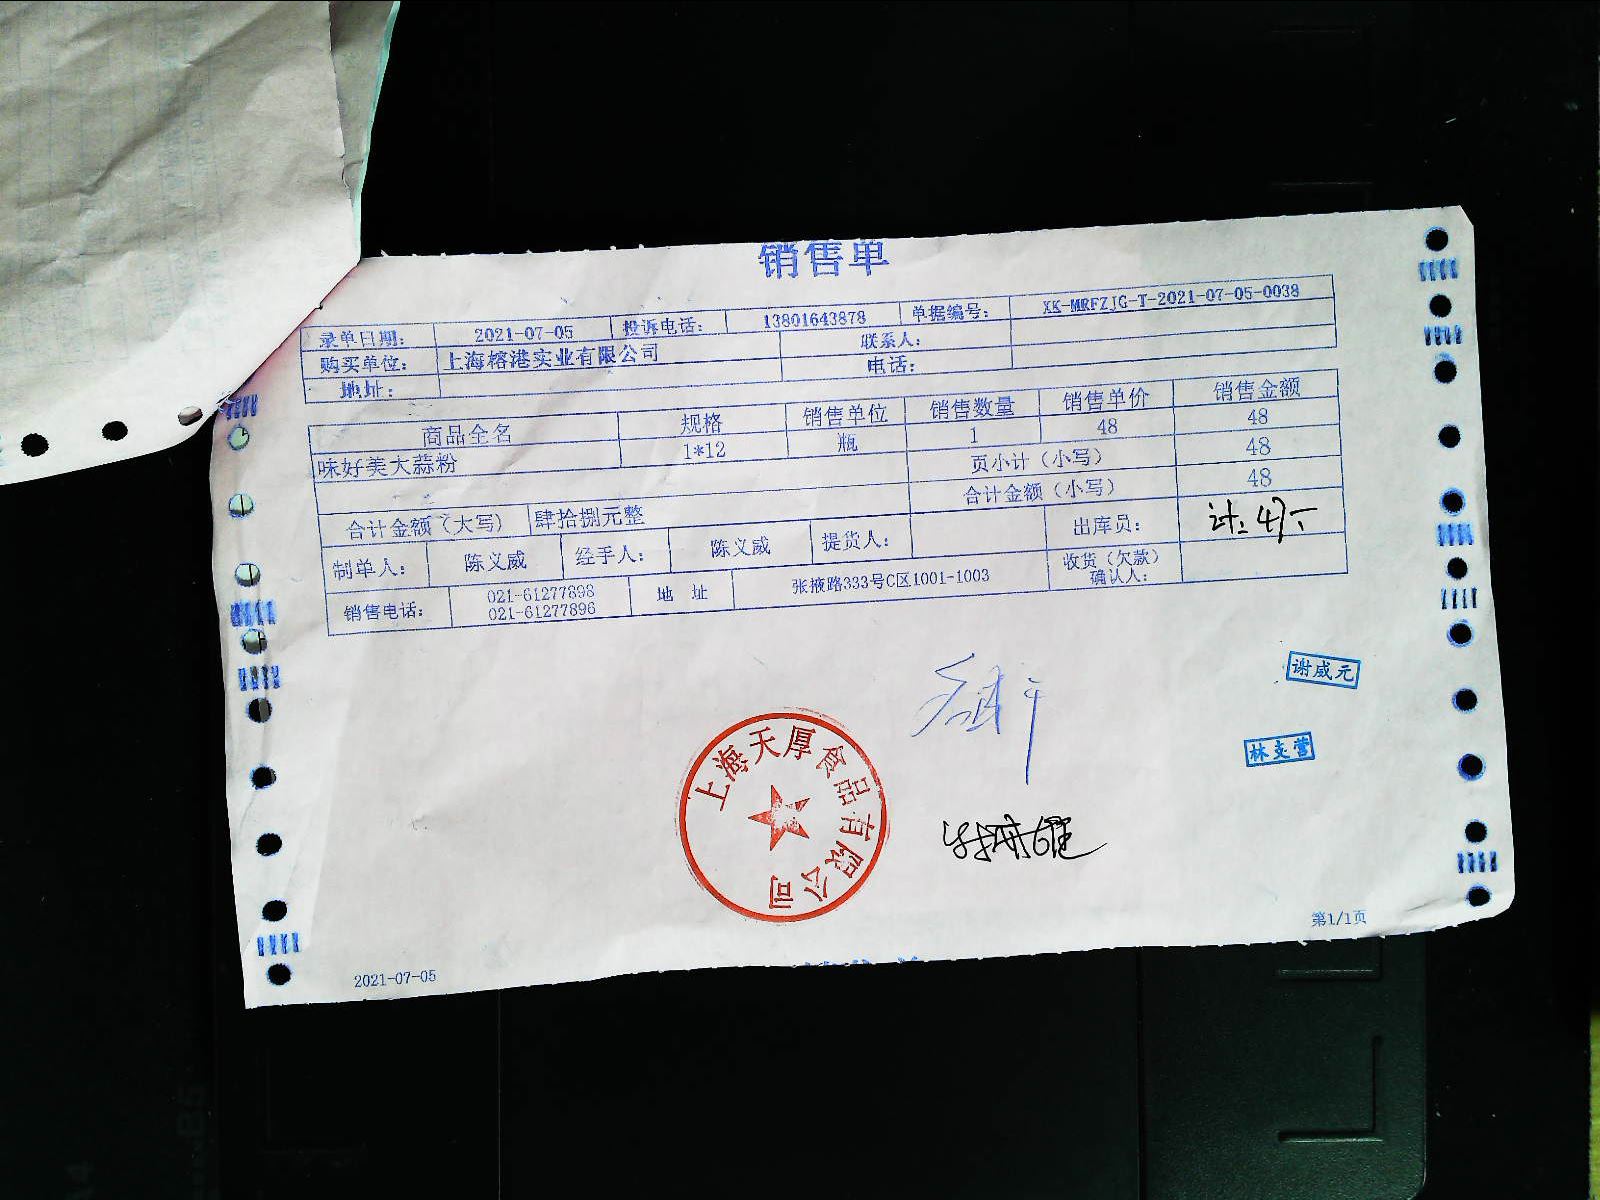 销售单
录单日期： 2021-07-05 投诉电话： 13801643878 单据编号： XK-MRFZJG-T-2021-07-05-0038
购买单位： 上海榕港实业有限公司 联系人：
地址： 电话：
商品全名 规格 销售单位 销售数量 销售单价 销售金额
味好美大蒜粉 1*12 瓶 1 48 48
页小计（小写） 48
合计金额（大写） 肆拾捌元整 合计金额（小写） 48
制单人： 陈义威 经手人： 陈义威 提货人： 出库员：
销售电话： 021-61277898 021-61277896 地 址 张掖路333号C区1001-1003 收货（欠款）确认人：
谢威元
上海天厚食品有限公司
2021-07-05
第1/1页